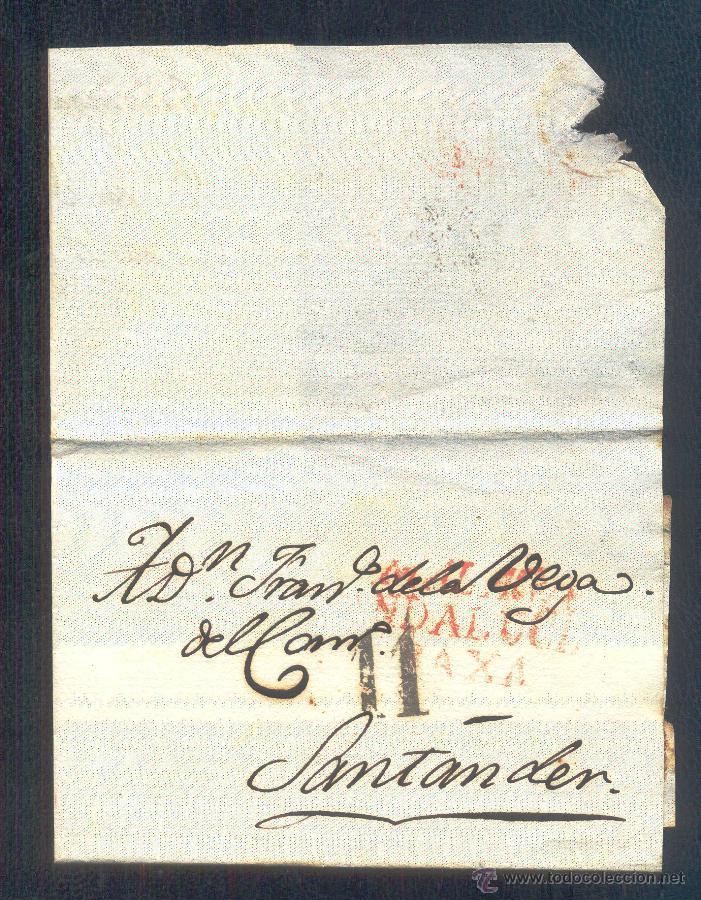 A Dn. Franco. de la Vega.
del Comº.
11
NDALUC
BAXA
Santander.
www.todocoleccion.net